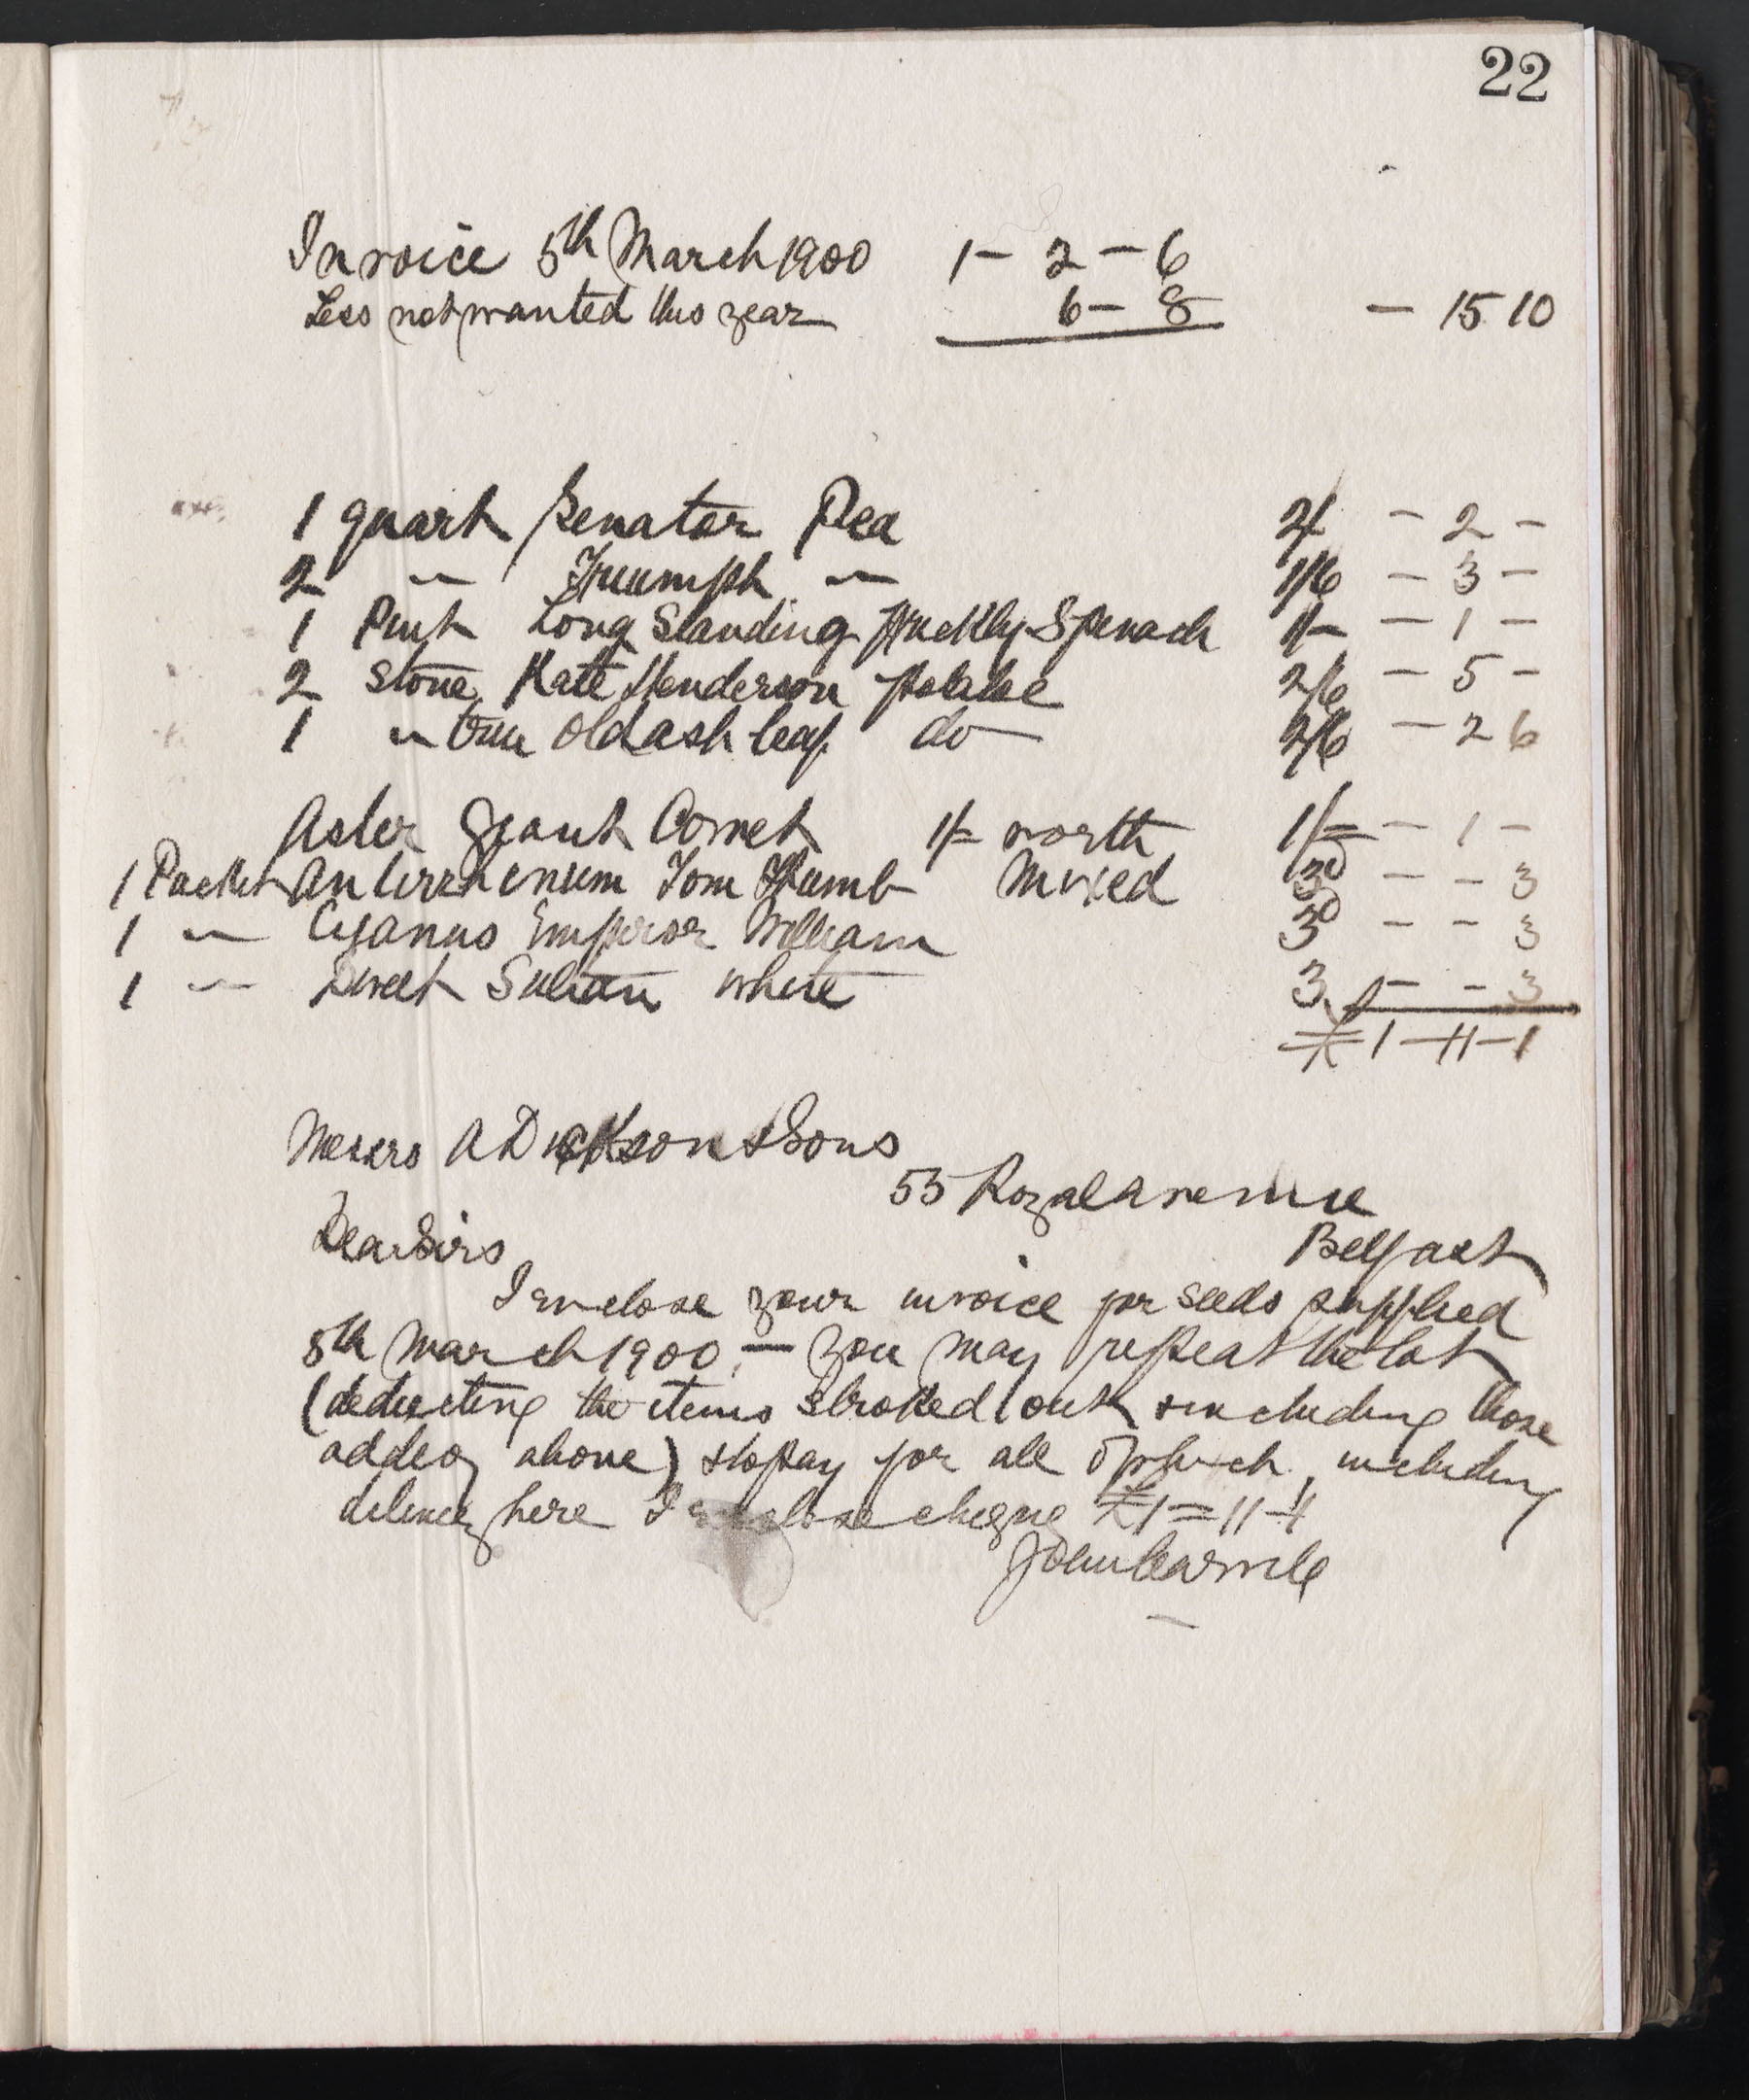 22
Invoice 5th March 1900 1 - 2 - 6
Less not wanted this year 6 - 8 - 15 10
1 quart Senator Pea 2/ - 2 -
2 " Triumph " 1/6 - 3 -
1 Pint Long Standing Prickly Spinach 1/- - 1 -
2 Stone Kate Henderson potatoe 2/6 - 5 -
1 " true old ash leaf do 2/6 - 2 6
Aster Giant Comet 1/= worth 1/= - 1 -
1 Packet Antirrhinum Tom Thumb Mixed 3D - - 3
1 " Cyanus Emperor William 3D - - 3
1 " Sweet Sultan white 3 - - 3
£1 - 11 - 1
Messrs A Dickson & Sons
55 Royal avenue
Belfast
Dear Sirs
I enclose your invoice for seeds supplied
5th March 1900, - you may repeat the lot
(deducting the items stroked out & including those
added above) & to pay for all of which, including
delivery here I enclose cheque £1 = 11 - 1
John